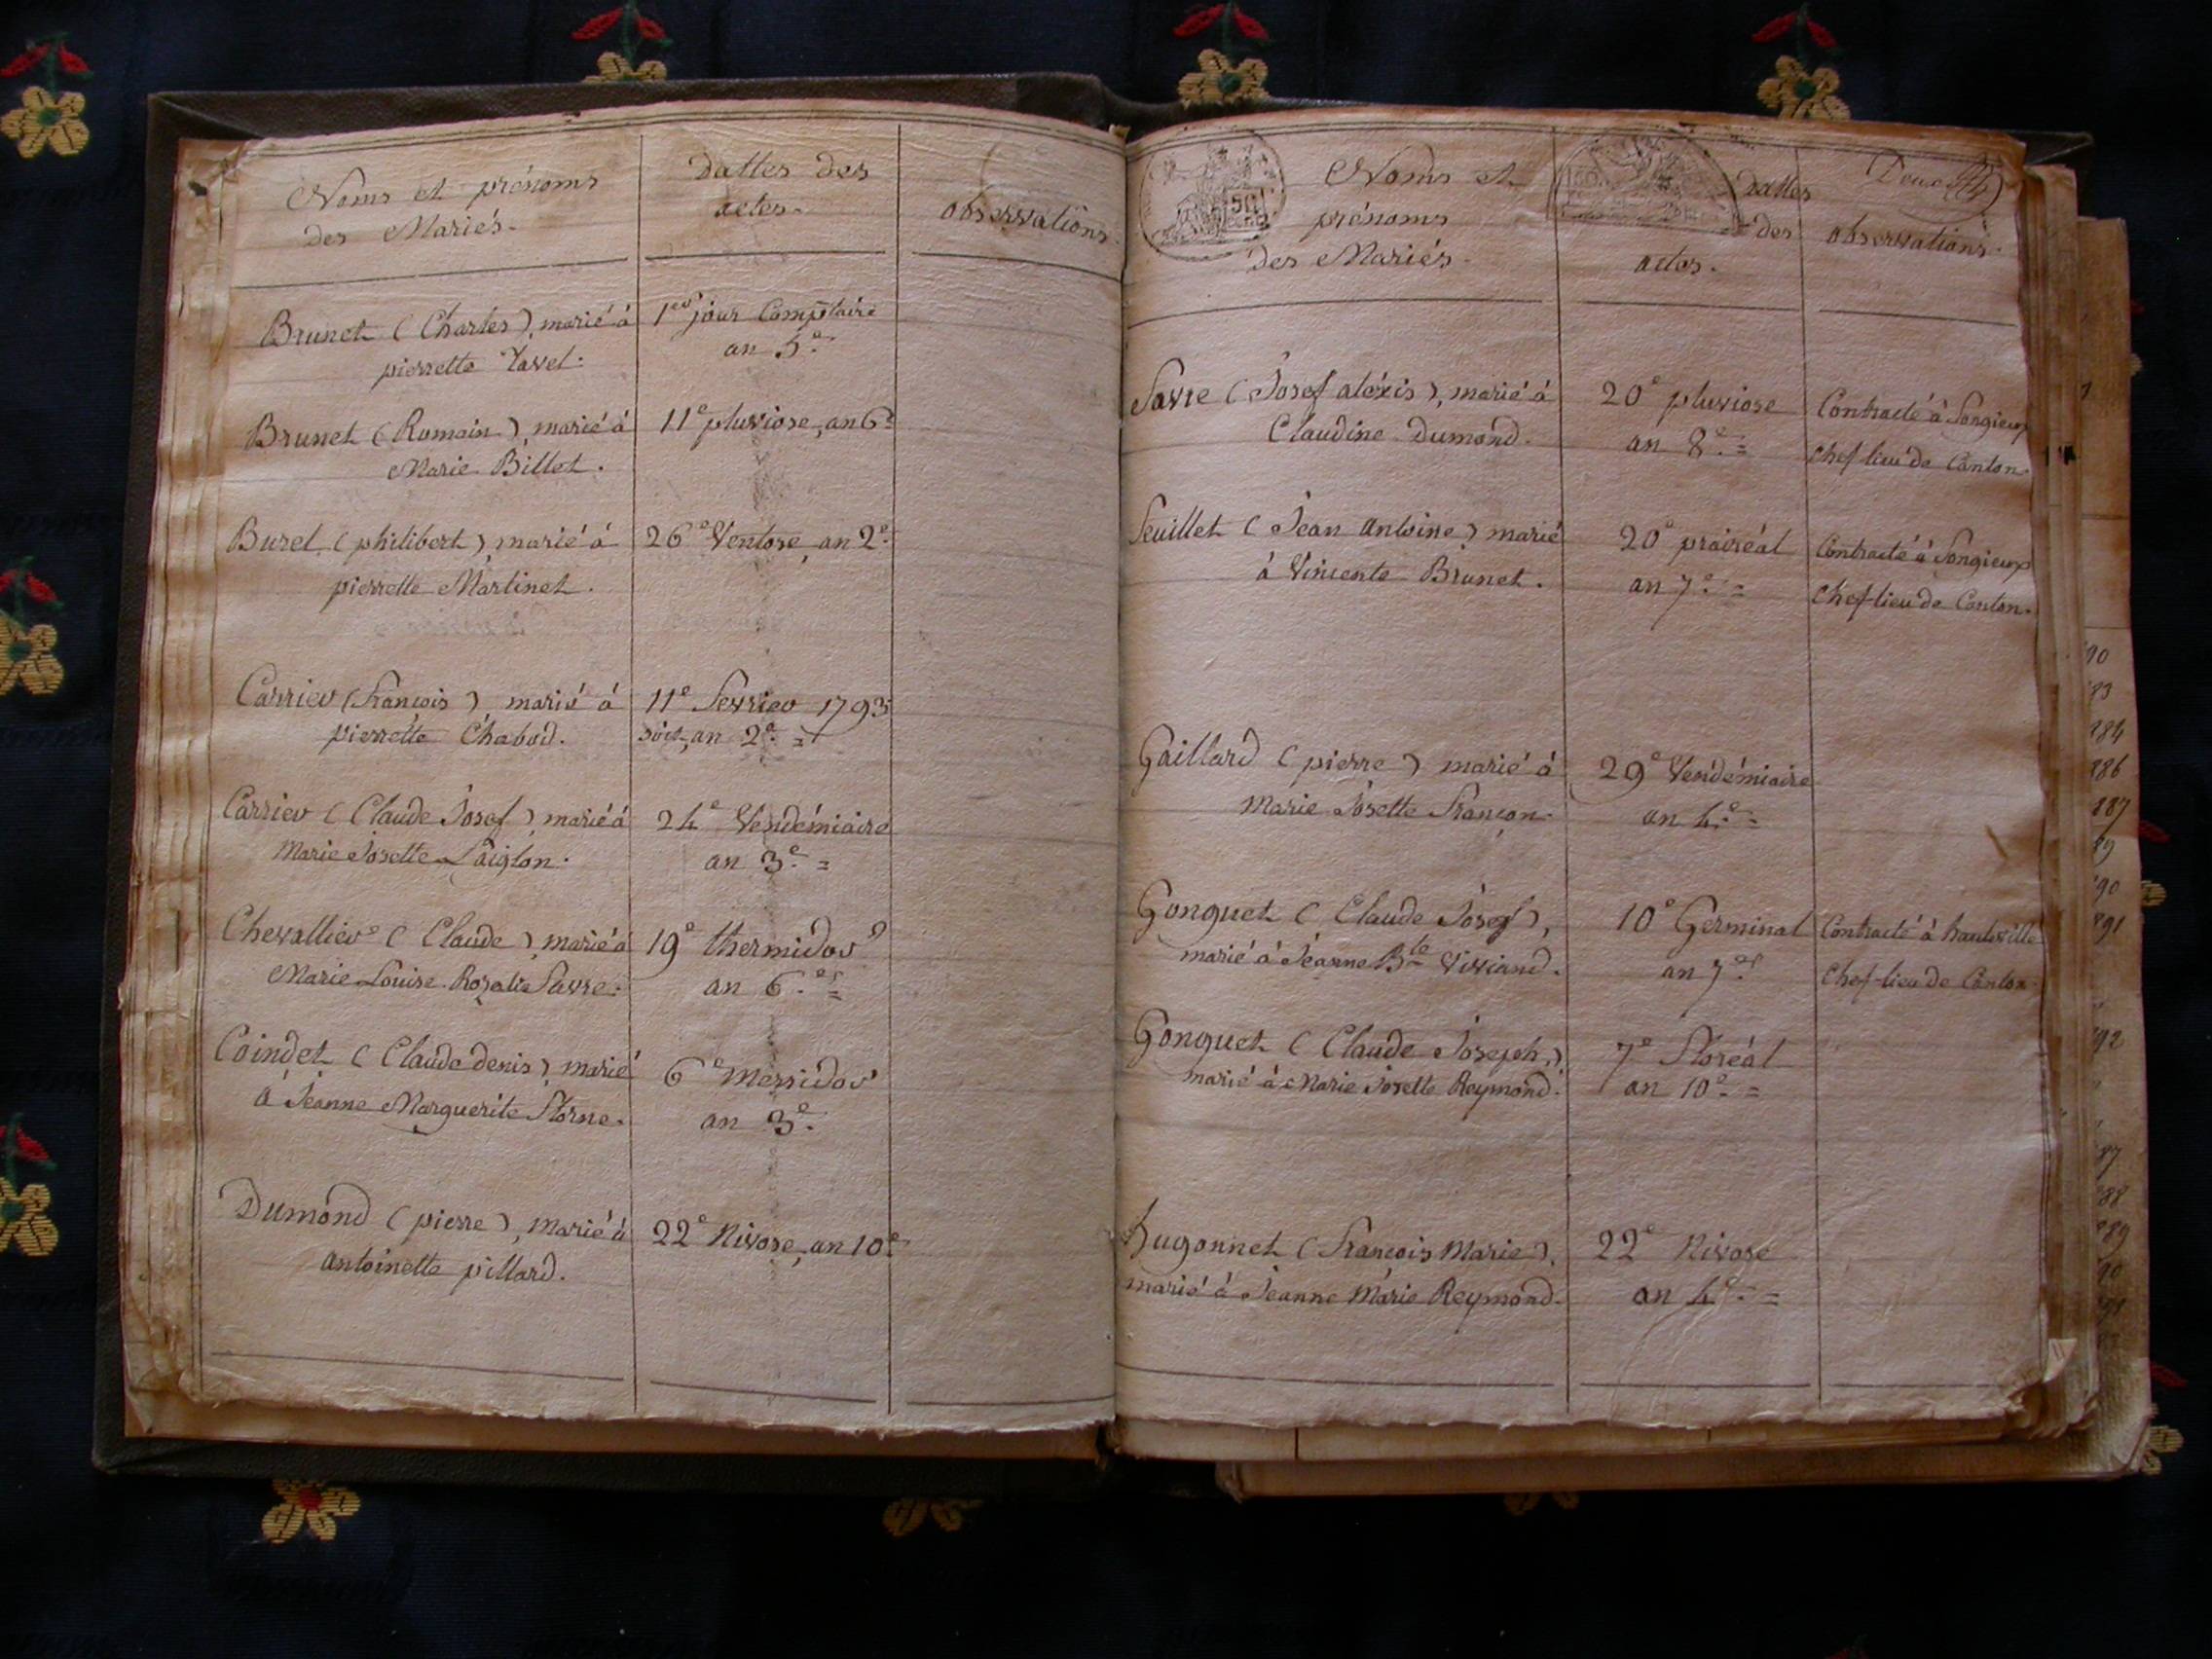 Noms et prénoms
des Mariés.
dattes des
actes.
observations.
Brunet (Charles), marié à
pierrette Tavel.
1er jour Complaire
an 5e.
Brunet (Romain), marié à
Marie Billet.
11e pluviose, an 6e
Buret (philibert), marié à
pierrette Martinet.
26e Ventose, an 2e.
Carrier (françois) marié à
pierrette Chabod.
11e fevrier 1793
soit, an 2e. =
Carrier (Claude Josef), marié à
Marie Josette Laiglon.
24e Vendémiaire
an 3e. =
Chevallier (Claude), marié à
Marie Louise Rozalie favre.
19e thermidor
an 6.e =
Coindet (Claude denis), marié
à Jeanne Marguerite florne.
6e Messidor
an 3e.
Dumond (pierre), marié à
antoinette pillard.
22e Nivose, an 10e
Noms et
prénoms
des Mariés.
dattes
des
actes.
observations.
favre (Josef aléxis), marié à
Claudine Dumond.
20e pluviose
an 8e. =
Contracté à Songieux
chef lieu de Canton.
feuillet (Jean antoine) marié
à Vincente Brunet.
20e prairéal
an 7e. =
Contracté à Songieux
chef-lieu de Canton.
Gaillard (pierre) marié à
Marie Josette françon.
29e Vendémiaire
an 4e. =
Gonguet (Claude Josef),
marié à Jeanne Bte Viviand.
10e Germinal
an 7e.
Contracté à hauteville
chef-lieu de Canton.
Gonguet (Claude Joseph,)
marié à Marie Josette Reymond.
7e floréal
an 10e. =
hugonnet (françois Marie),
marié à Jeanne Marie Reymond.
22e Nivose
an 4e. =